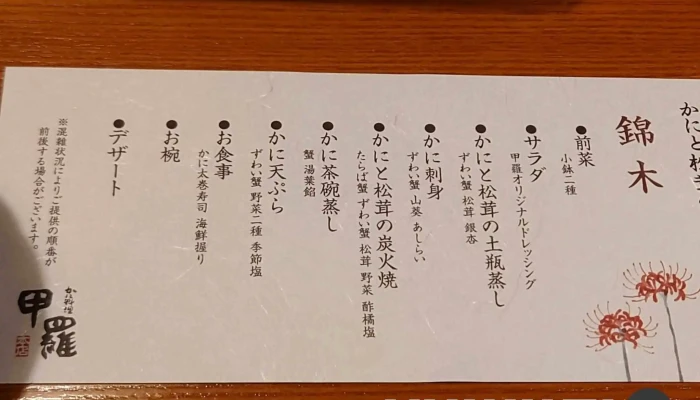 かにと松茸
錦木
●前菜
小鉢二種
●サラダ
甲羅オリジナルドレッシング
●かにと松茸の土瓶蒸し
ずわい蟹 松茸 銀杏
●かに刺身
ずわい蟹 山葵 あしらい
●かにと松茸の炭火焼
たらば蟹 ずわい蟹 松茸 野菜 酢橘塩
●かに茶碗蒸し
蟹 湯葉餡
●かに天ぷら
ずわい蟹 野菜二種 季節塩
●お食事
かに太巻寿司 海鮮握り
●お椀
●デザート
※混雑状況によりご提供の順番が
前後する場合がございます。
かに料理
甲羅
本店